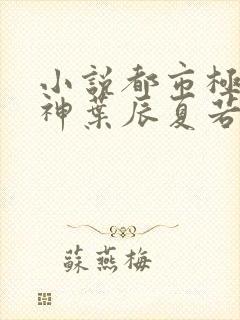 小説都市極
神葉辰夏若
蘇燕梅